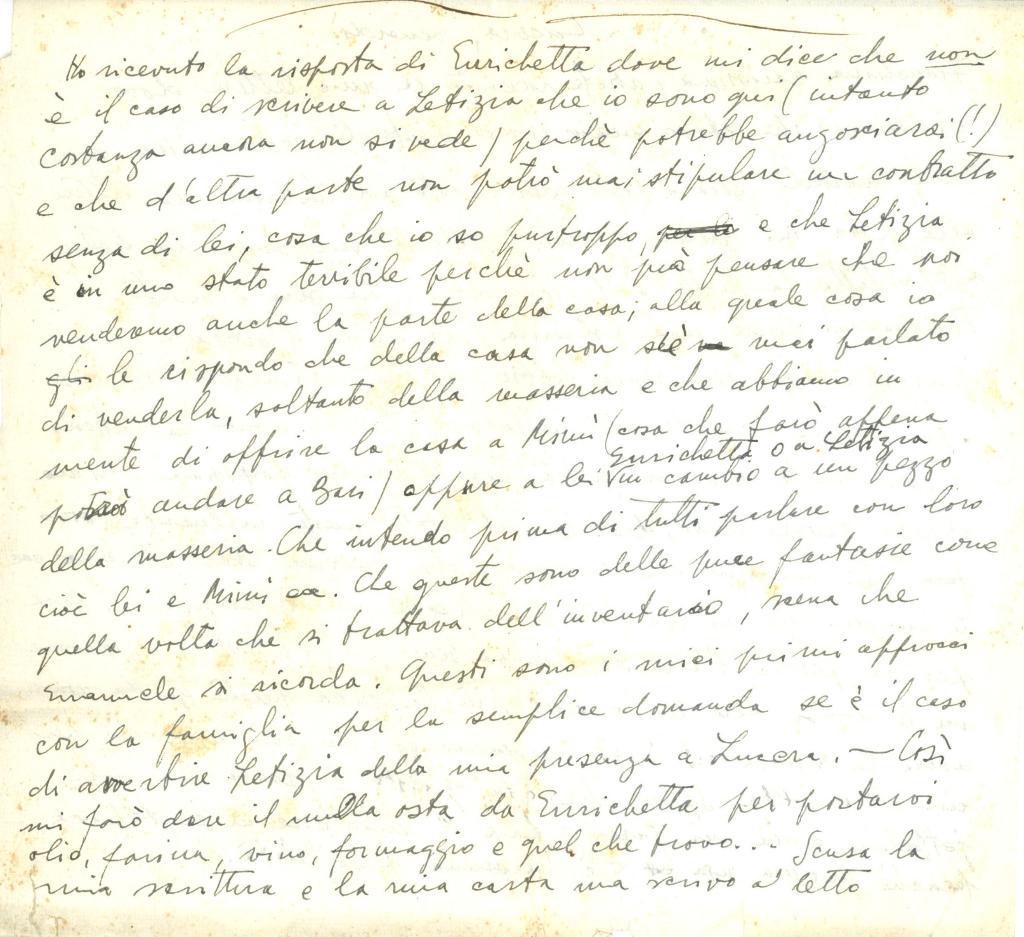 Ho ricevuto la risposta di Enrichetta dove mi dice che non
è il caso di scrivere a Letizia che io sono qui (intanto
Costanza ancora non si vede) perchè potrebbe angosciarsi (!)
e che d'altra parte non potrò mai stipulare un contratto
senza di lei, cosa che io so purtroppo, e che Letizia
è in uno stato terribile perchè non può pensare che noi
venderemo anche la parte della casa; alla quale cosa io
le rispondo che della casa non s'è mai parlato
di venderla, soltanto della masseria e che abbiamo in
mente di offrire la casa a Mimì (cosa che farò appena
potrò andare a Bari) oppure a lei Enrichetta o a Letizia in cambio a un pezzo
della masseria. Che intendo prima di tutti parlare con loro
cioè lei e Mimì. Che queste sono delle pure fantasie come
quella volta che si trattava dell'inventario, scena che
Emanuele si ricorda. Questi sono i miei primi approcci
con la famiglia per la semplice domanda se è il caso
di avvertire Letizia della mia presenza a Lucera. — Così
mi farò dare il nulla osta da Enrichetta per portarvi
olio, farina, vino, formaggio e quel che trovo... Scusa la
mia scrittura e la mia carta ma scrivo a letto